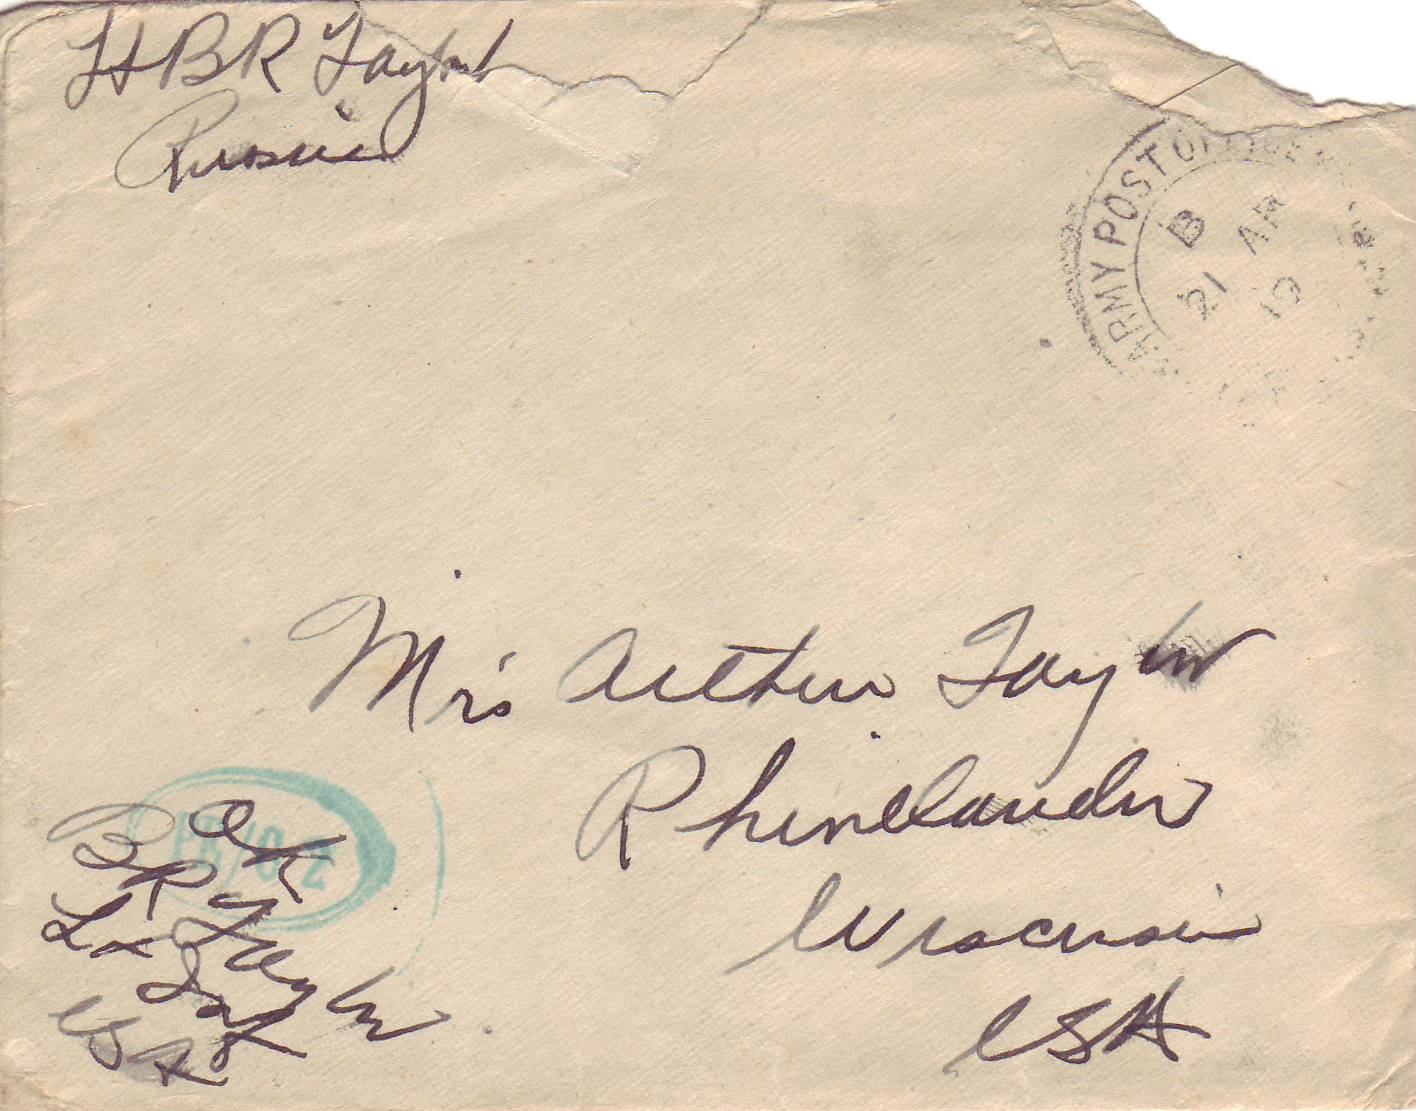 Lt BR Taylor
Russia
ARMY POST OFFICE
B
21 AP
19
Mrs Arthur Taylor
Rhinelander
Wisconsin
USA
OK
BR Taylor
Lt Inf
USA